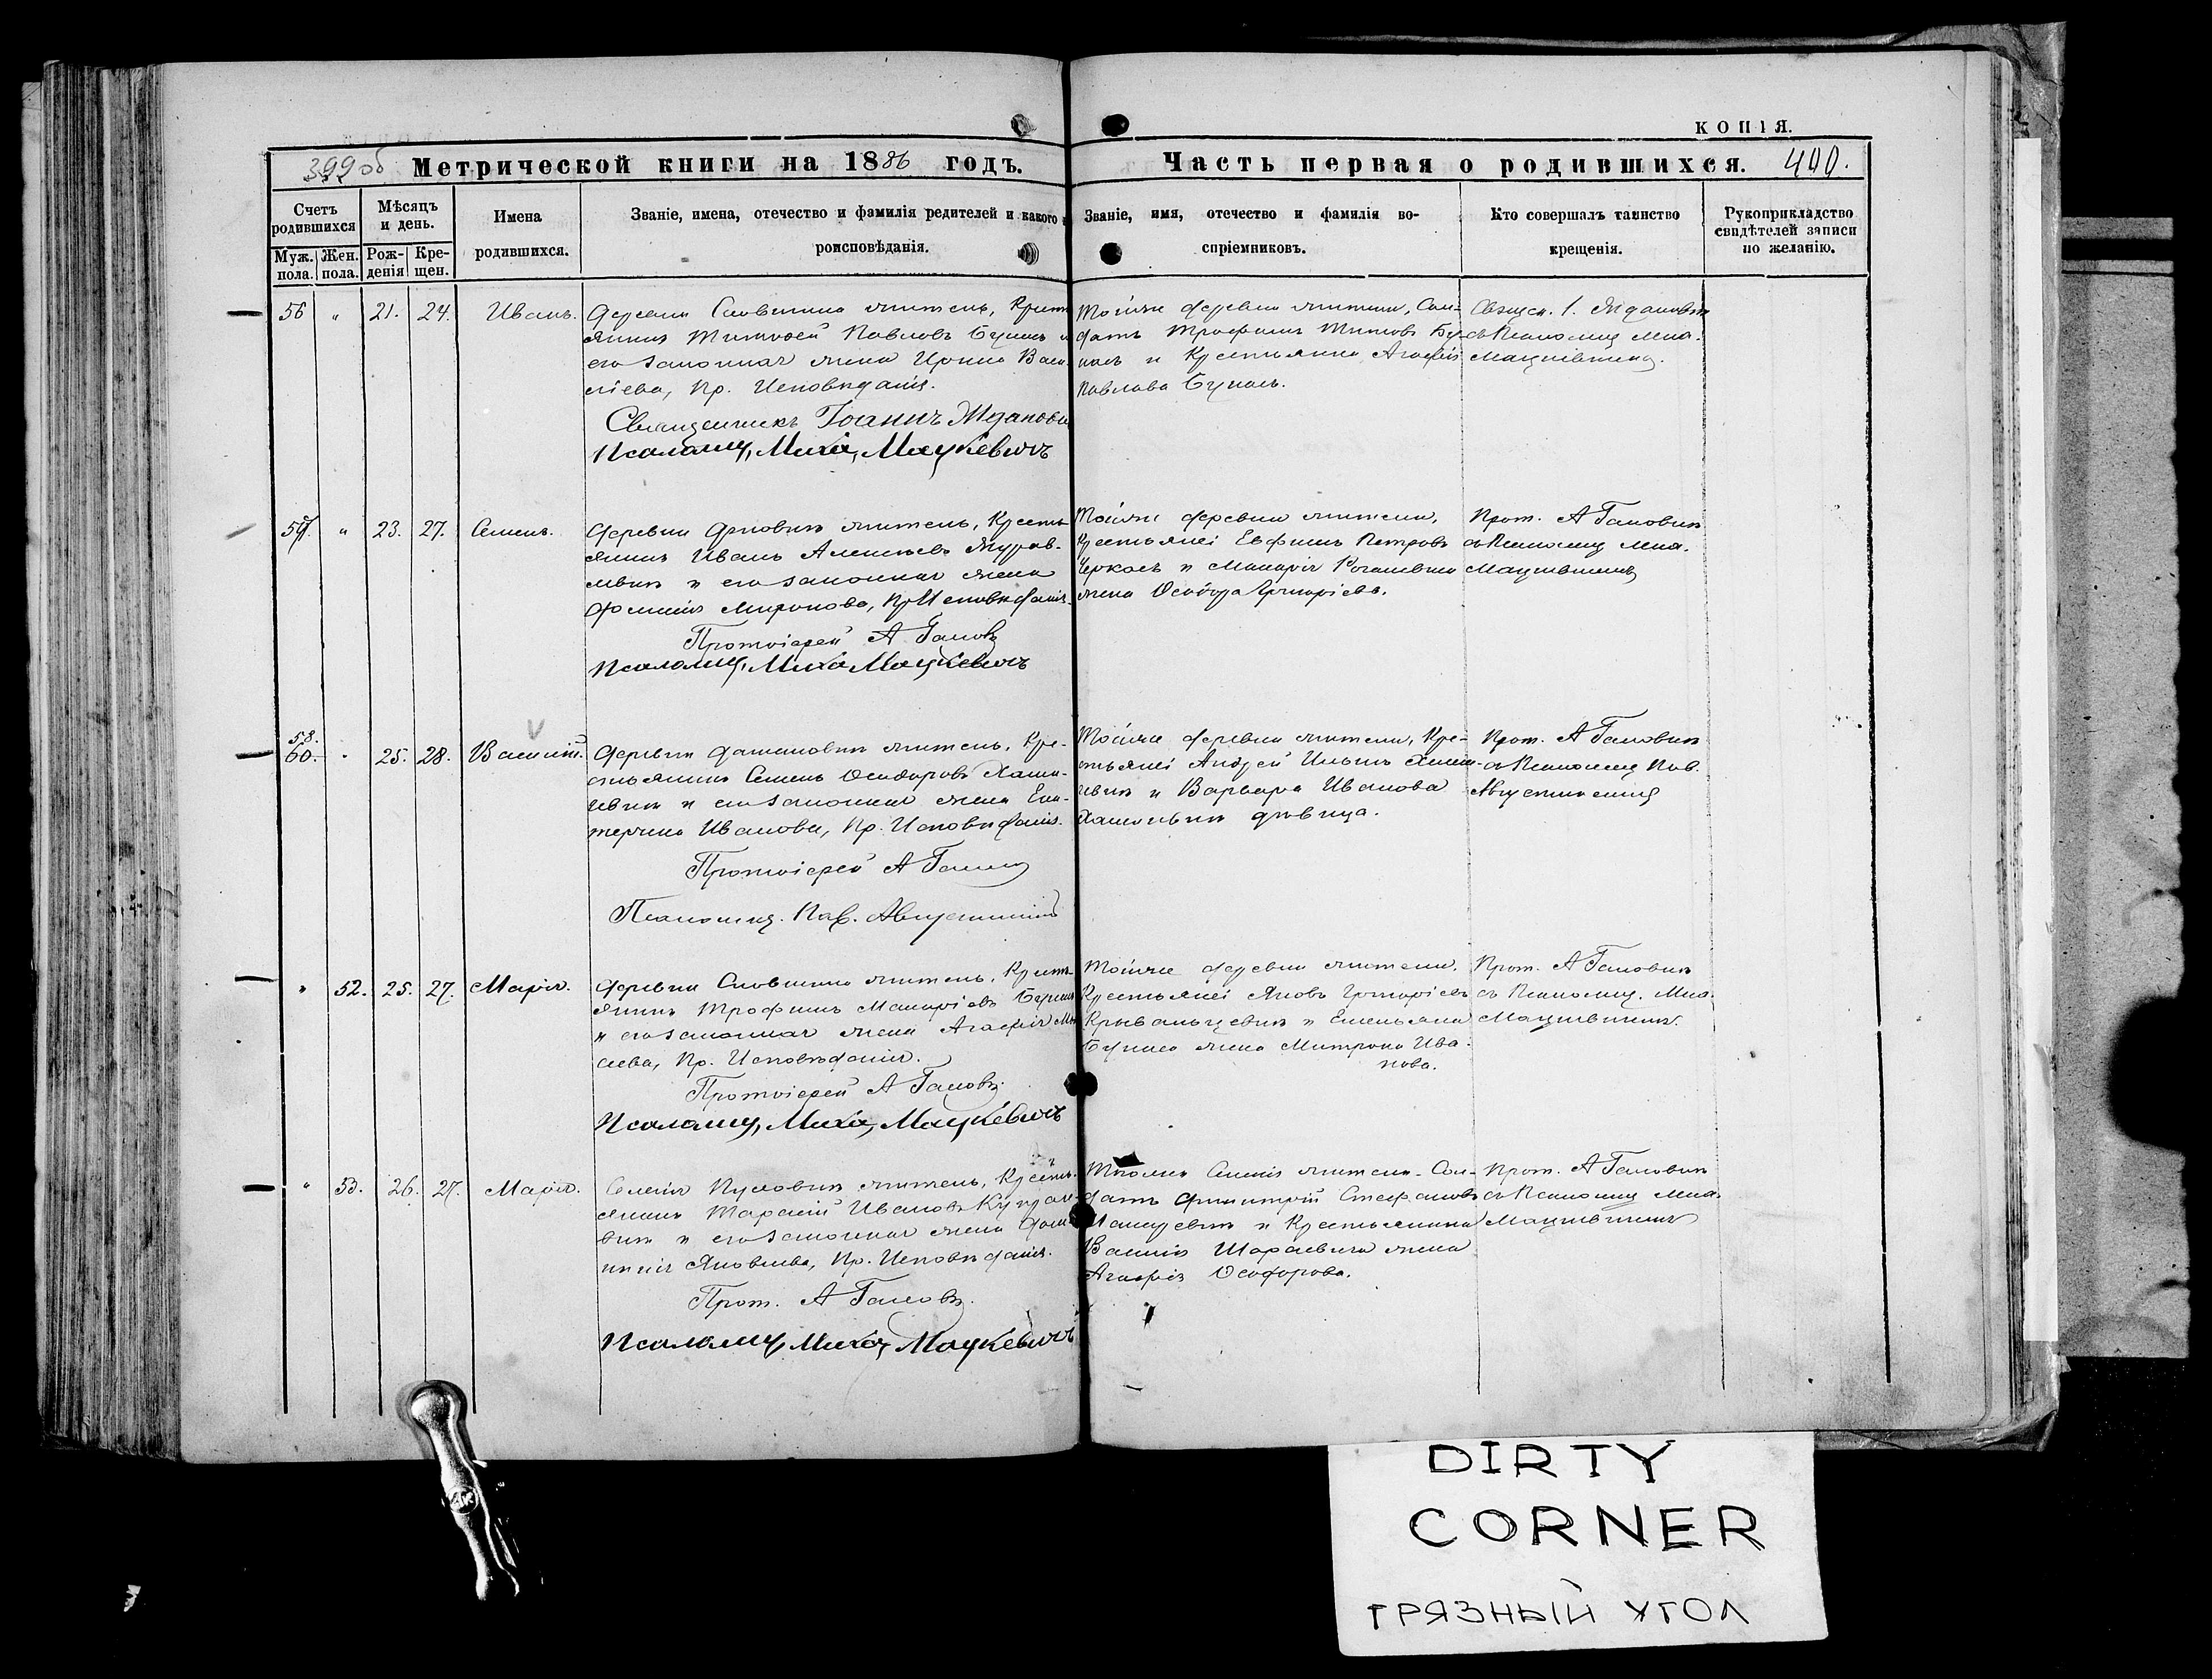 КОПІЯ.
399 об Метрической книги на 1886 годъ.
Часть первая о родившихся. 400.
Счетъ родившихся
Муж. пола.
Жен. пола.
Мѣсяцъ и день.
Рожденія
Крещен.
Имена родившихся.
Званіе, имена, отечество и фамилія родителей и какого
роисповѣданія.
Званіе, имя, отечество и фамилія во-
спріемниковъ.
Кто совершалъ таинство
крещенія.
Рукоприкладство
свидѣтелей записи
по желанію.
56 " 21. 24. Иванъ.
Деревни житель, Крест
янинъ Тимофей Павловъ Букасъ и
его законная жена Ирина Васи
лієва, Пр. Исповѣданія.
Священникъ Іоаннъ Жданови
Псаломщ, Миха, Мацкевичъ
Тойже деревни жители, Сол-
датъ Трофимъ Титовъ Бу-
касъ и Крестьянка Агафія
Павлова Букасъ.
Священ. І. Жданович
съ Псаломщ Мих.
Мацкевичемъ.
57. " 23. 27. Семенъ.
Деревни житель, Кресть
янинъ Иванъ Алексѣевъ Журав-
левич и его законная жена
Миронова, Пр Исповѣданія.
Протоіерей А Галов
Псаломщ, Миха Мацкевичъ
Тойже деревни жители,
Крестьяне Евфимъ Петровъ
Черкасъ и Макарія
жена Ѳеодора Григорієва.
Прот. А Галович
съ Псаломщ Мих.
Мацкевичемъ
58.
60. " 25. 28. Василій.
Деревни житель, Кре-
стьянинъ Семенъ Ѳеодоровъ
и его законная жена Ека-
терина Иванова, Пр. Исповѣданія.
Протоіерей А Галов
Псаломщ. Пав. Августинович
Тойже деревни жители, Кре-
стьяне Андрей Ильинъ
и Варвара Иванова
дѣвица.
Прот. А Галович
съ Псаломщ Пав.
" 52. 25. 27. Марія.
Деревни житель, Кресть
янинъ Трофимъ Макарієвъ Букас
и его законная жена Агафія
Пр. Исповѣданія.
Протоіерей А Галов.
Псаломщ, Миха, Мацкевичъ
Тойже деревни жители,
Крестьяне Яковъ Григорієвъ
Крывальцевич и Емельяна
Букаса жена Митрона Ива-
нова.
Прот. А Галович
съ Псаломщ. Мих.
Мацкевичем.
" 53. 26. 27. Марія.
Селенія житель, Кресть
янинъ Тарасій Ивановъ
и его законная жена
Яковлева, Пр. Исповѣданія.
Прот. А Галов.
Псаломщ, Миха, Мацкевичъ
Селенія жители Сол-
датъ Димитрій Стефановъ
и Крестьянина
Василія жена
Агафія Ѳеодорова.
Прот. А Галович
съ Псаломщ Мих.
Мацкевичемъ
DIRTY
CORNER
ГРЯЗНЫЙ УГОЛ